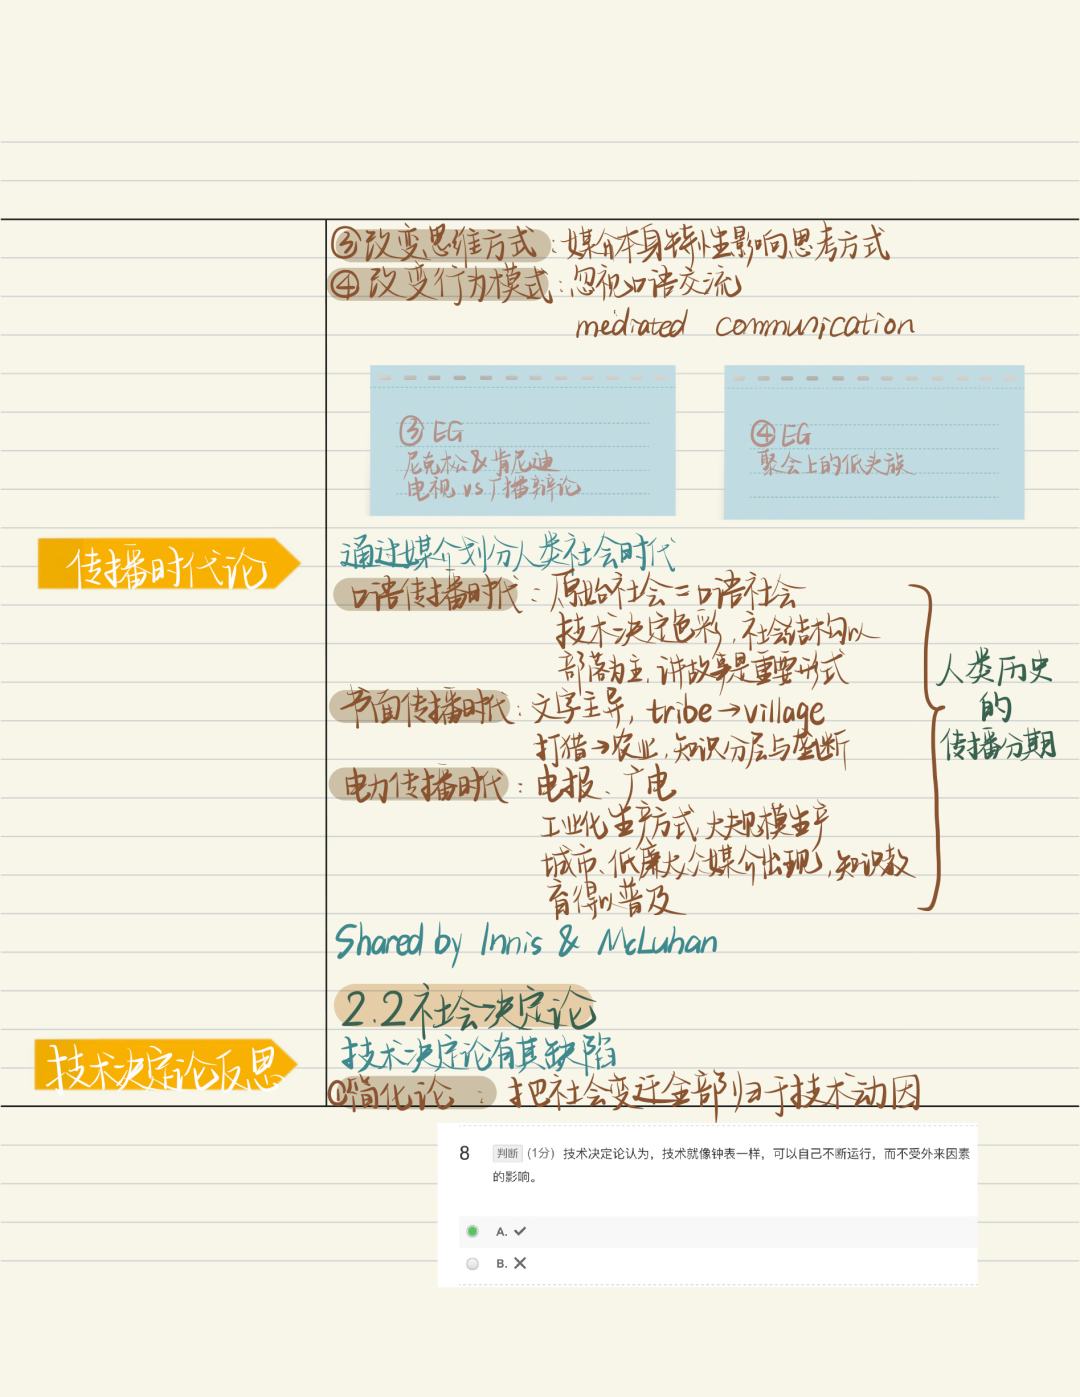 ③改变思维方式：媒介本身特性影响思考方式
④改变行为模式：忽视口语交流
mediated communication
③ EG
尼克松&肯尼迪
电视 vs 广播辩论
④ EG
聚会上的低头族
传播时代论
通过媒介划分人类社会时代
口语传播时代：原始社会=口语社会
技术决定色彩,社会结构以
部落为主,讲故事是重要形式
书面传播时代：文字主导, tribe→village
打猎→农业,知识分层与垄断
电力传播时代：电报、广电
工业化生产方式,大规模生产
城市、低廉大众媒介出现,知识教
育得以普及
人类历史
的
传播分期
Shared by Innis & McLuhan
2.2社会决定论
技术决定论反思
技术决定论有其缺陷
①简化论：把社会变迁全部归于技术动因
8 判断 (1分) 技术决定论认为，技术就像钟表一样，可以自己不断运行，而不受外来因素
的影响。
A. ✓
B. ✕